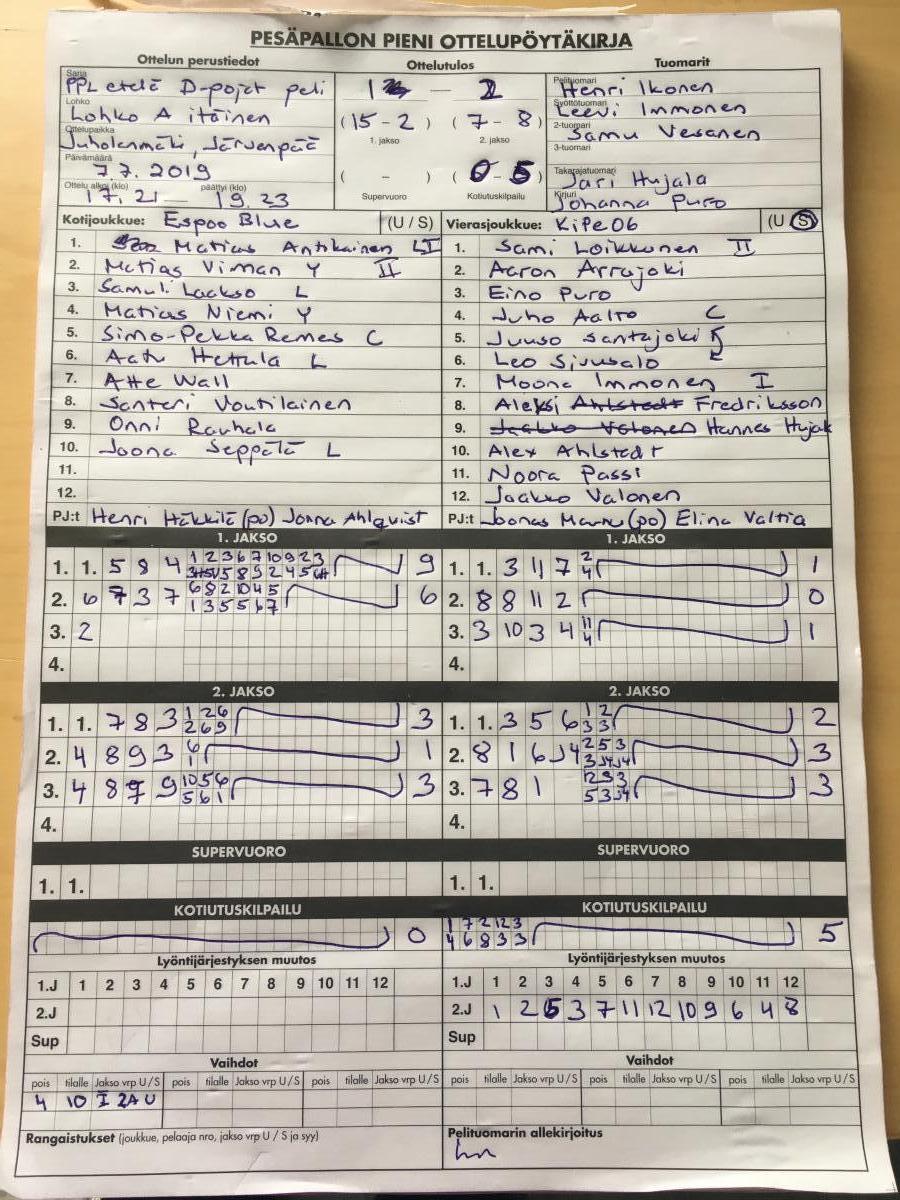 PESÄPALLON PIENI OTTELUPÖYTÄKIRJA
Ottelun perustiedot Ottelutulos Tuomarit
Sarja PPL etelä D-pojat peli
Lohko Lohko A itäinen
Ottelupaikka Juholanmäki, Järvenpää
Päivämäärä 7.7.2019
Ottelu alkoi (klo) 17.21 — päättyi (klo) 19.23
1 — 2
(15 - 2) (7 - 8)
1. jakso 2. jakso
( - ) (0 - 5)
Supervuoro Kotiutuskilpailu
Pelituomari Henri Ikonen
Syöttötuomari Leevi Immonen
2-tuomari Samu Vesanen
3-tuomari
Takarajatuomari Jari Hujala
Kirjuri Johanna Puro
Kotijoukkue: Espoo Blue (U / S)
1. Matias Antikainen LI
2. Matias Viman Y II
3. Samuli Laakso L
4. Matias Niemi Y
5. Simo-Pekka Remes C
6. Aatu Hettula L
7. Atte Wall
8. Santeri Voutilainen
9. Onni Rauhala
10. Joona Seppälä L
11.
12.
PJ:t Henri Häkkilä (po) Jonna Ahlqvist
Vierasjoukkue: KiPe06 (U S)
1. Sami Loikkonen II
2. Aaron Arrajoki
3. Eino Puro
4. Juho Aalto C
5. Juuso Santajoki
6. Leo Sivusalo
7. Moona Immonen I
8. Aleksi Ahlstedt Fredriksson
9. Jaakko Valonen Hannes Hujak
10. Alex Ahlstedt
11. Noora Passi
12. Jaakko Valonen
PJ:t Joonas (po) Elina Valtia
1. JAKSO
1. 1. 5 8 4 1 2 3 6 7 10 9 2 3 9
5 8 9 2 4 5
2. 6 7 3 7 6 8 2 10 4 5 6
1 3 5 5 6 7
3. 2
4.
1. JAKSO
1. 1. 3 11 7 2 1
4
2. 8 8 11 2 0
3. 3 10 3 4 11 1
4
4.
2. JAKSO
1. 1. 7 8 3 1 2 6 3
2 6 9
2. 4 8 9 3 6 1
1
3. 4 8 9 9 10 5 6 3
5 6 1
4.
2. JAKSO
1. 1. 3 5 6 1 2 2
3 3
2. 8 1 6 J4 2 5 3 3
3 J4 J4
3. 7 8 1 12 3 3 3
5 3 J4
4.
SUPERVUORO
1. 1.
SUPERVUORO
1. 1.
KOTIUTUSKILPAILU
0
KOTIUTUSKILPAILU
1 7 2 12 3 5
4 6 8 3 3
Lyöntijärjestyksen muutos
1.J 1 2 3 4 5 6 7 8 9 10 11 12
2.J
Sup
Lyöntijärjestyksen muutos
1.J 1 2 3 4 5 6 7 8 9 10 11 12
2.J 1 2 5 3 7 11 12 10 9 6 4 8
Sup
Vaihdot
pois tilalle Jakso vrp U / S pois tilalle Jakso vrp U / S pois tilalle Jakso vrp U / S
4 10 I 2A U
Vaihdot
pois tilalle Jakso vrp U / S pois tilalle Jakso vrp U / S pois tilalle Jakso vrp U / S
Rangaistukset (joukkue, pelaaja nro, jakso vrp U / S ja syy)
Pelituomarin allekirjoitus